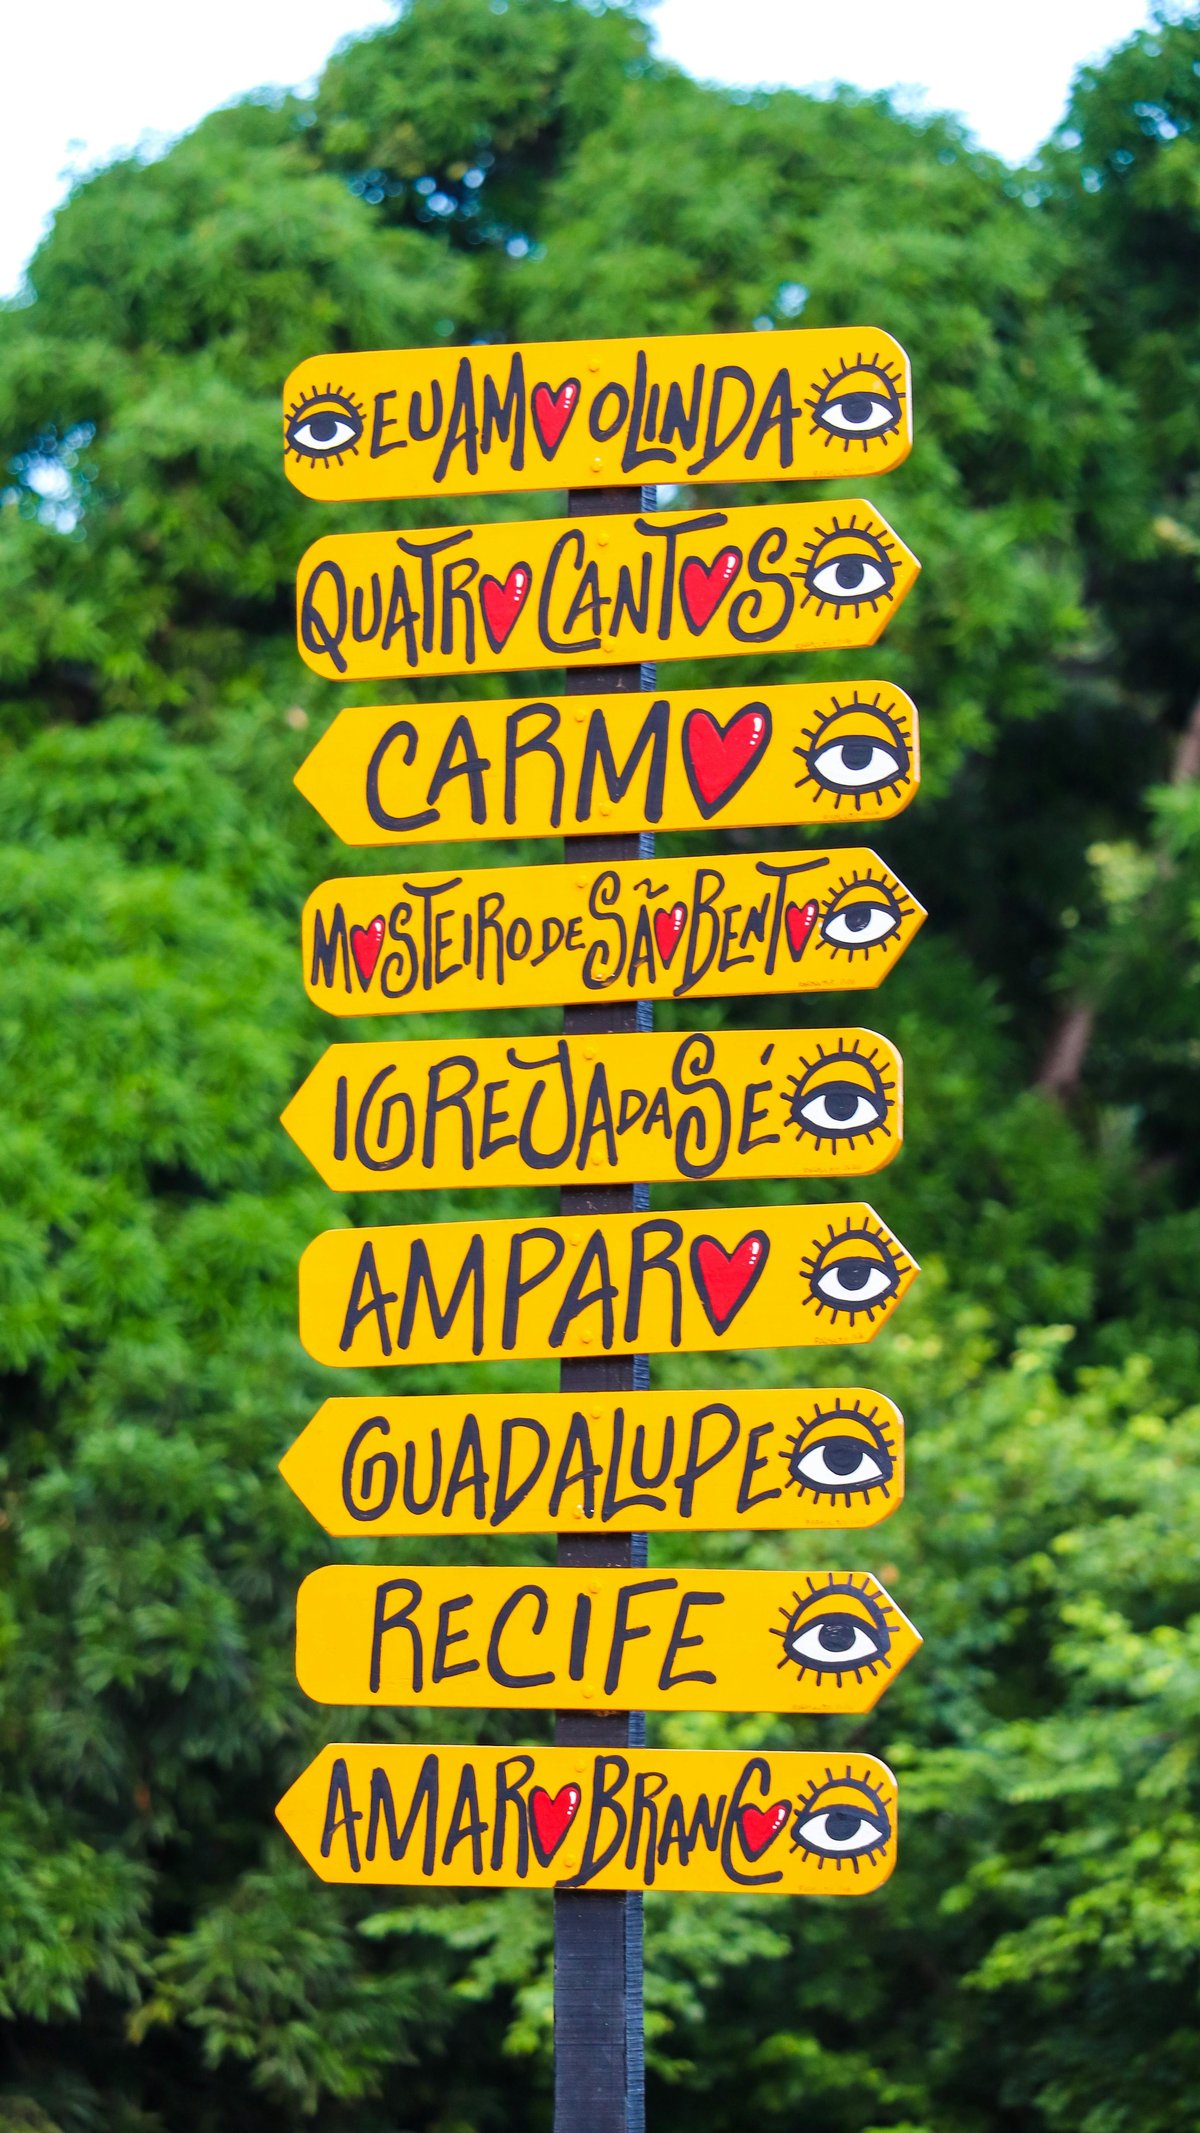 EU AMO OLINDA
QUATRO CANTOS
CARMO
MOSTEIRO DE SÃO BENTO
IGREJA DA SÉ
AMPARO
GUADALUPE
RECIFE
AMARO BRANCO